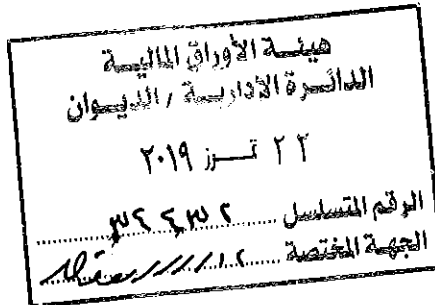 هيئة الأوراق المالية
الدائرة الإدارية / الديوان
٢٢ تموز ٢٠١٩
الرقم المتسلسل
الجهة المختصة ١٢